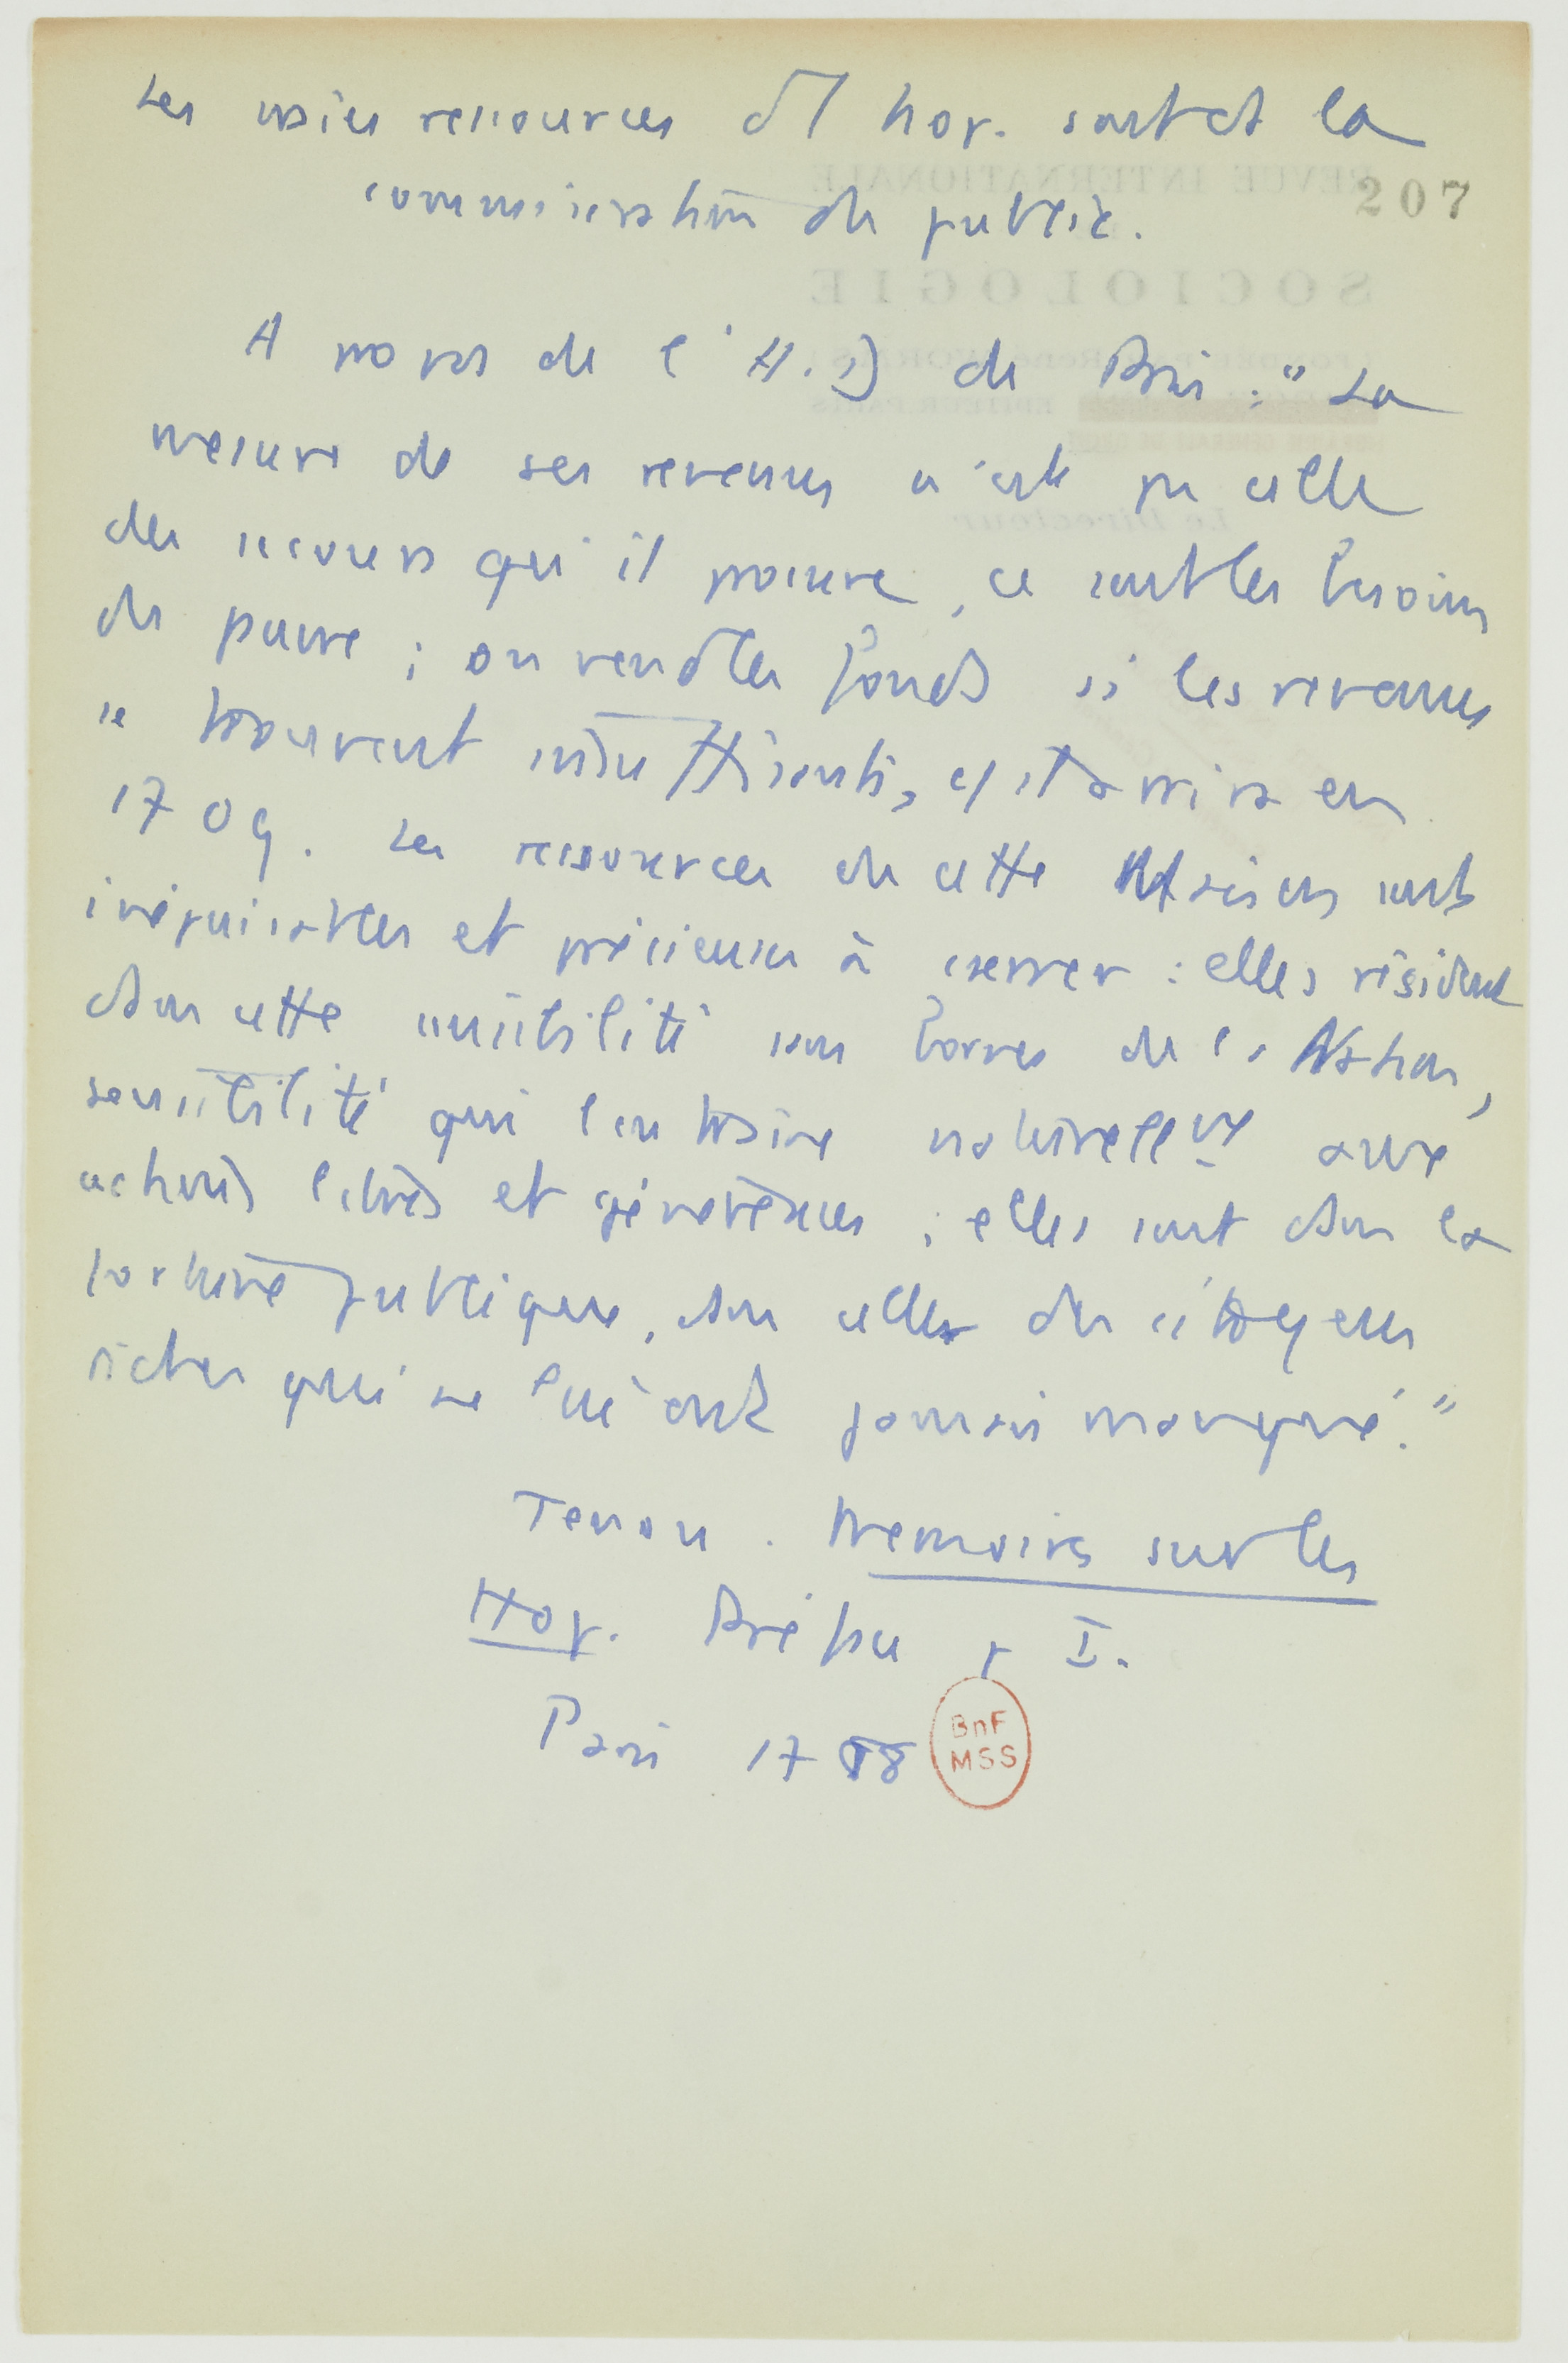 Les vraies ressources d l hop. sont ds la
commisération du public.
207
A propos de l'H. D de Paris : "La
mesure de ses revenus n'est pas celle
des secours qu'il procure, ce sont les besoins
du pauvre ; on vend les fonds si les revenus
se trouvent insuffisants, c/ il arriva en
1709. Les ressources de cette Maison sont
inépuisables et précieuses à conserver : elles résident
dans cette sensibilité sans bornes de la Nation,
sensibilité qui l'entraîne naturellemt aux
actions libres et généreuses ; elles sont dans la
fortune publique, dans celle des citoyens
riches qui ne lui ont jamais manqué."
Tenon. Memoires sur les
Hop. Préface p I.
Paris 1788
BnF
MSS
REVUE INTERNATIONALE
SOCIOLOGIE
Le Directeur